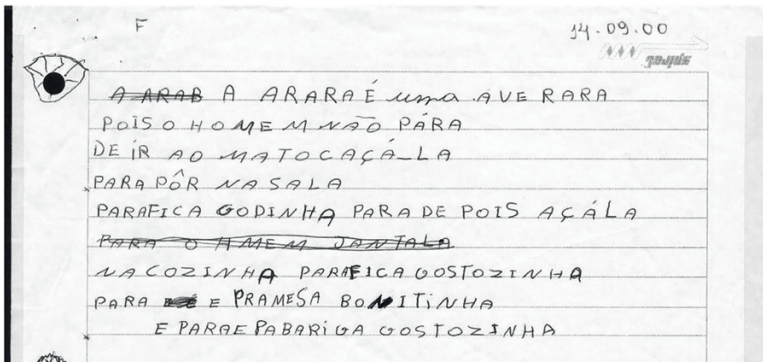 F
14.09.00
A ARAB A ARARA É uma AVE RARA
POIS O HOMEM NÃO PÁRA
DE iR AO MATO CAÇÁ-LA
PARA PÔR NA SALA
PARAFICA GODINHA PARA DE POIS AÇÁLA
PARA O HMEM JANTALA
NA COZINHA PARAFICA GOSTOZINHA
PARA E PRAMESA BONITiNHA
E PARAE PABARiGA GOSTOZINHA